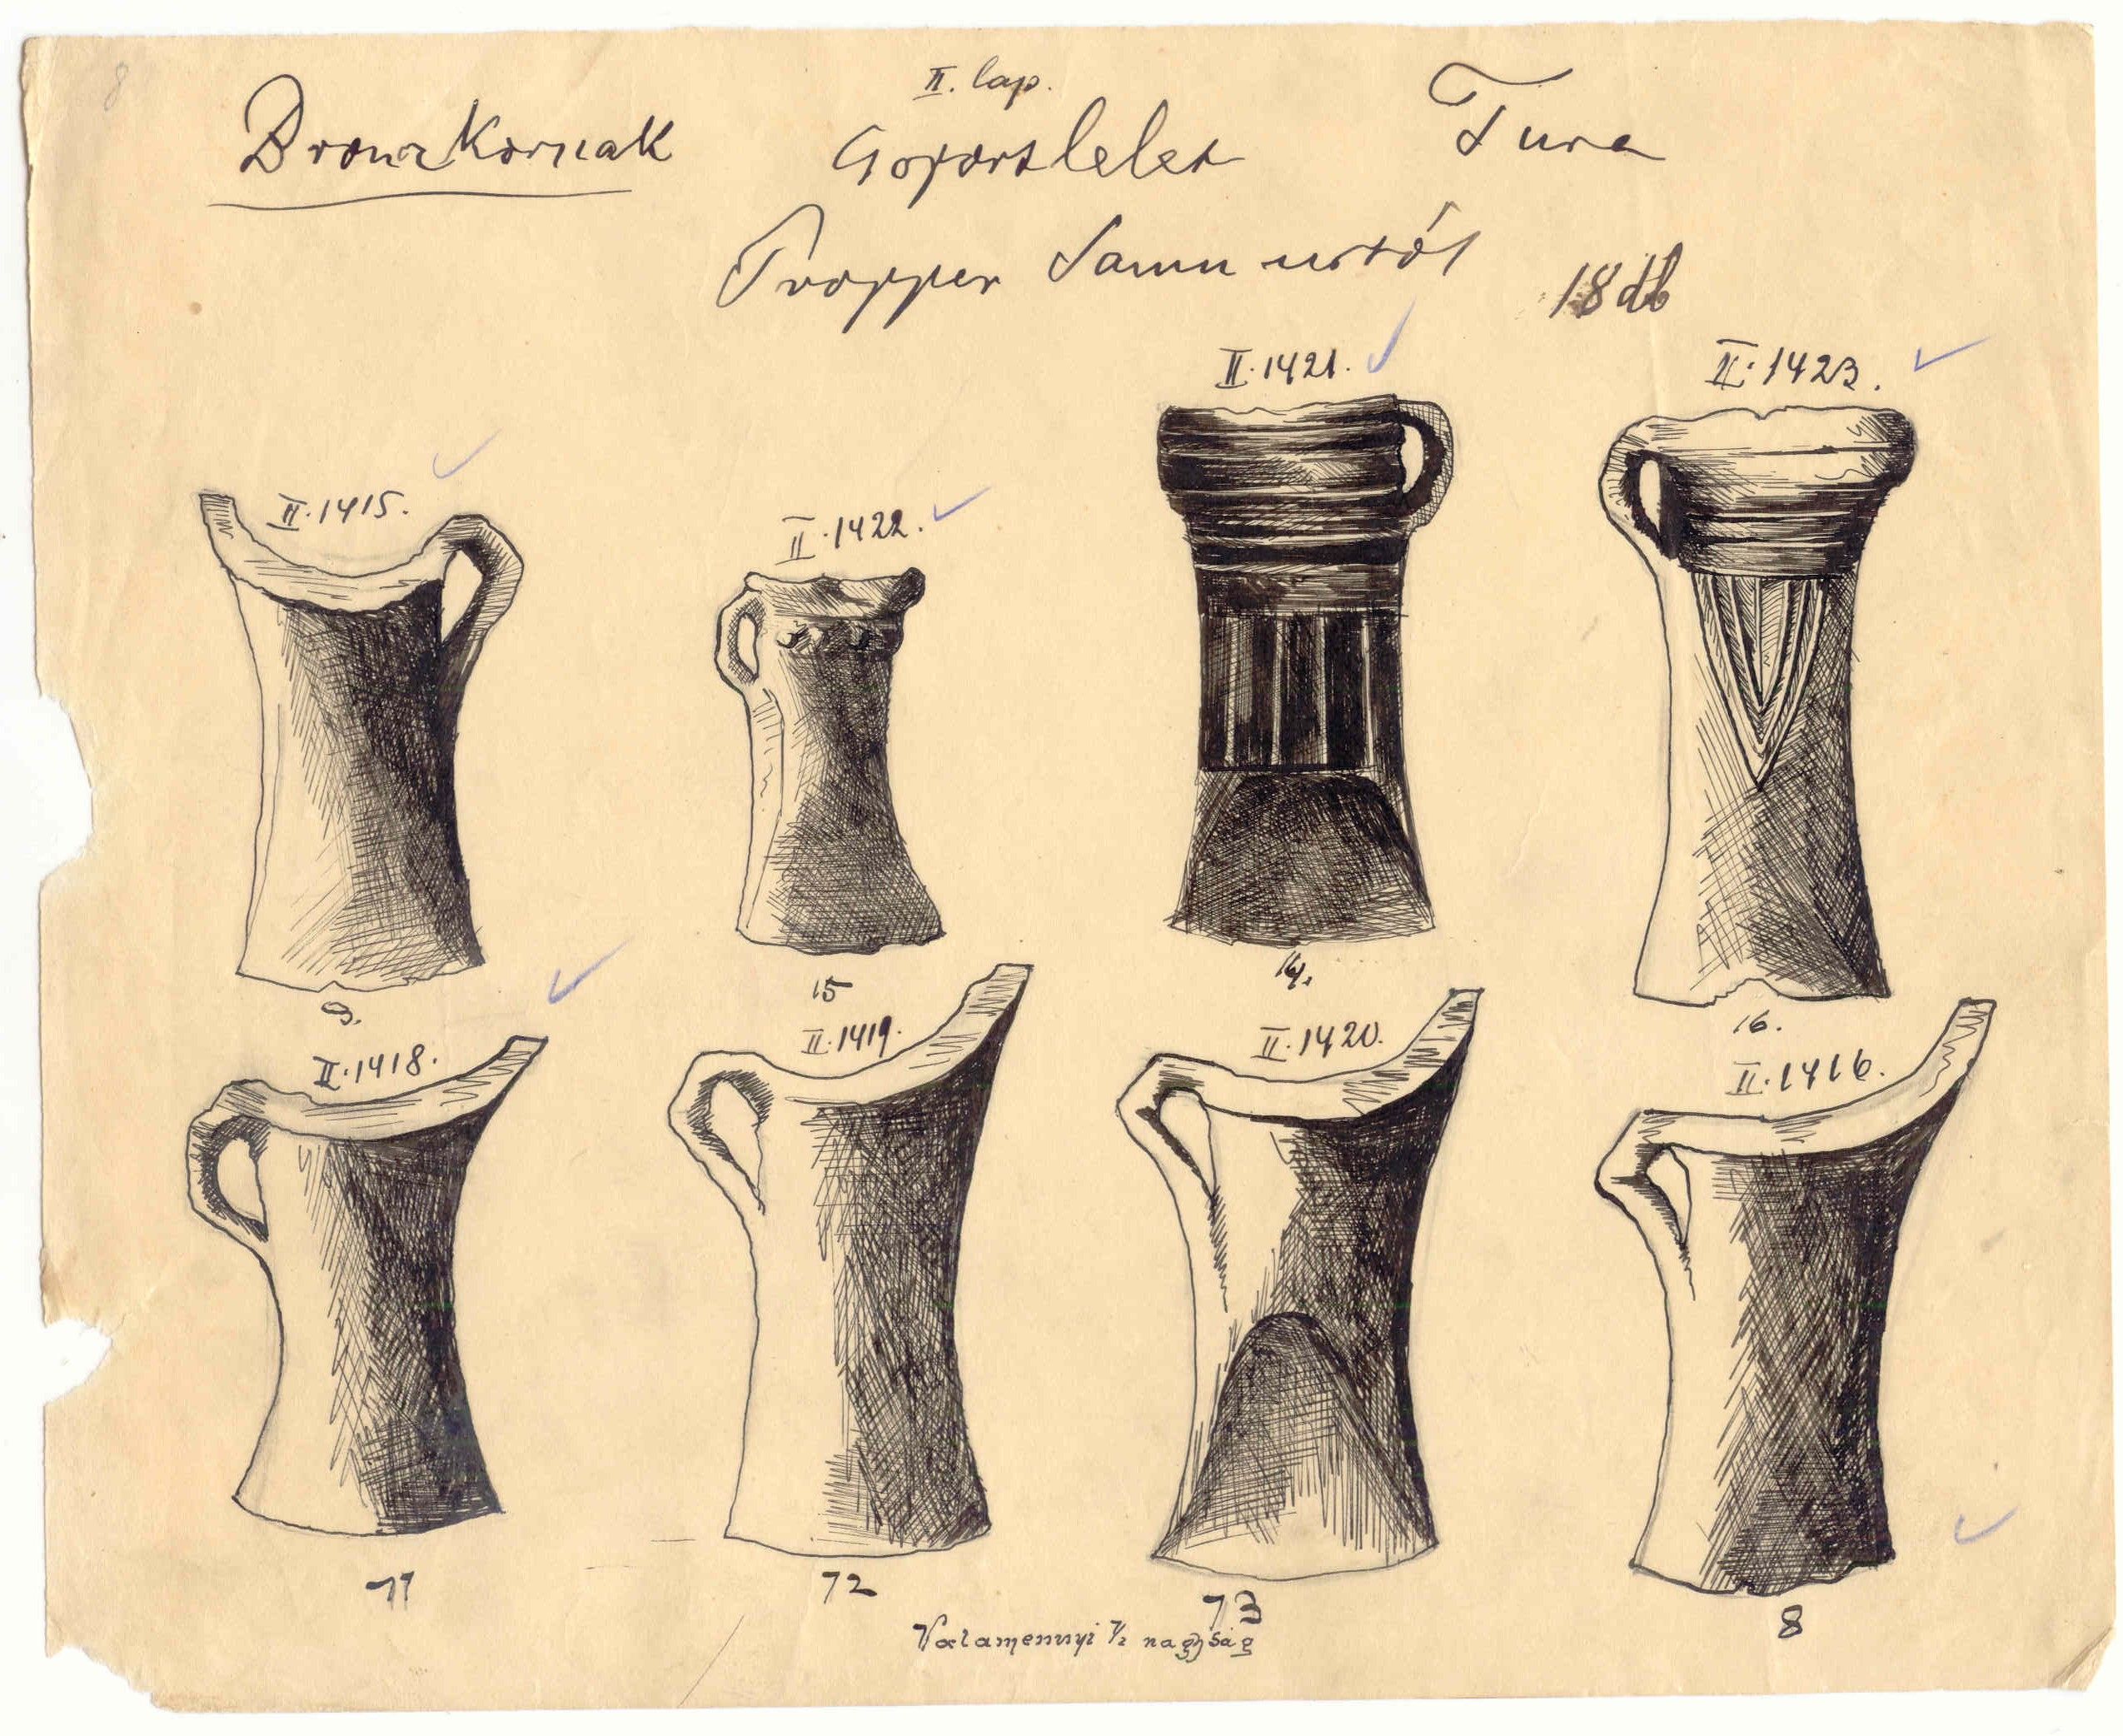 8
II. lap.
Bronzkornak Csoportlelet Tura
Propper Samu úrtól 18 db
II.1421. II.1423.
II.1415. II.1422.
9. 15 14. 16.
II.1418. II.1419. II.1420. II.1416.
11 12 13 8
Valamennyi 1/2 nagyság